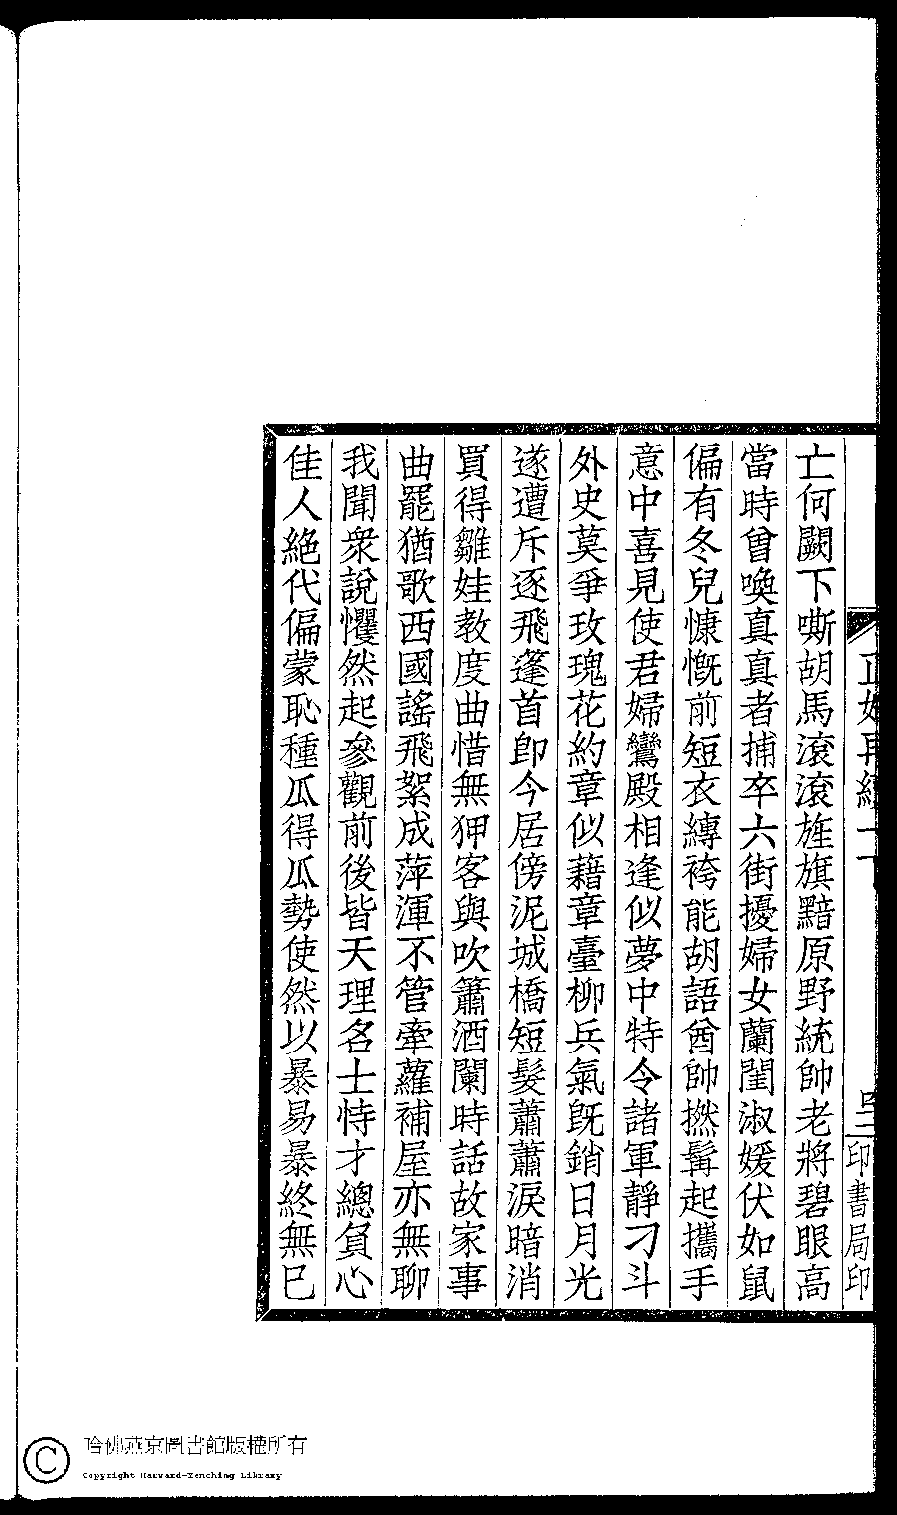 亡何闕下嘶胡馬滾滾旌旗黯原野統帥老將碧眼高
當時曾喚真真者捕卒六街擾婦女蘭閨淑媛伏如鼠
偏有冬兒慷慨前短衣縛袴能胡語酋帥撚髯起攜手
意中喜見使君婦鸞殿相逢似夢中特令諸軍靜刁斗
外史莫爭玫瑰花約章似藉章臺柳兵氣旣銷日月光
遂遭斥逐飛蓬首卽今居傍泥城橋短髮蕭蕭淚暗消
買得雛娃教度曲惜無狎客與吹簫酒闌時話故家事
曲罷猶歌西國謠飛絮成萍渾不管牽蘿補屋亦無聊
我聞衆說懼然起參觀前後皆天理名士恃才總負心
佳人絕代偏蒙恥種瓜得瓜勢使然以暴易暴終無已
印書局印
哈佛燕京圖書館版權所有
Copyright Harvard-Yenching Library